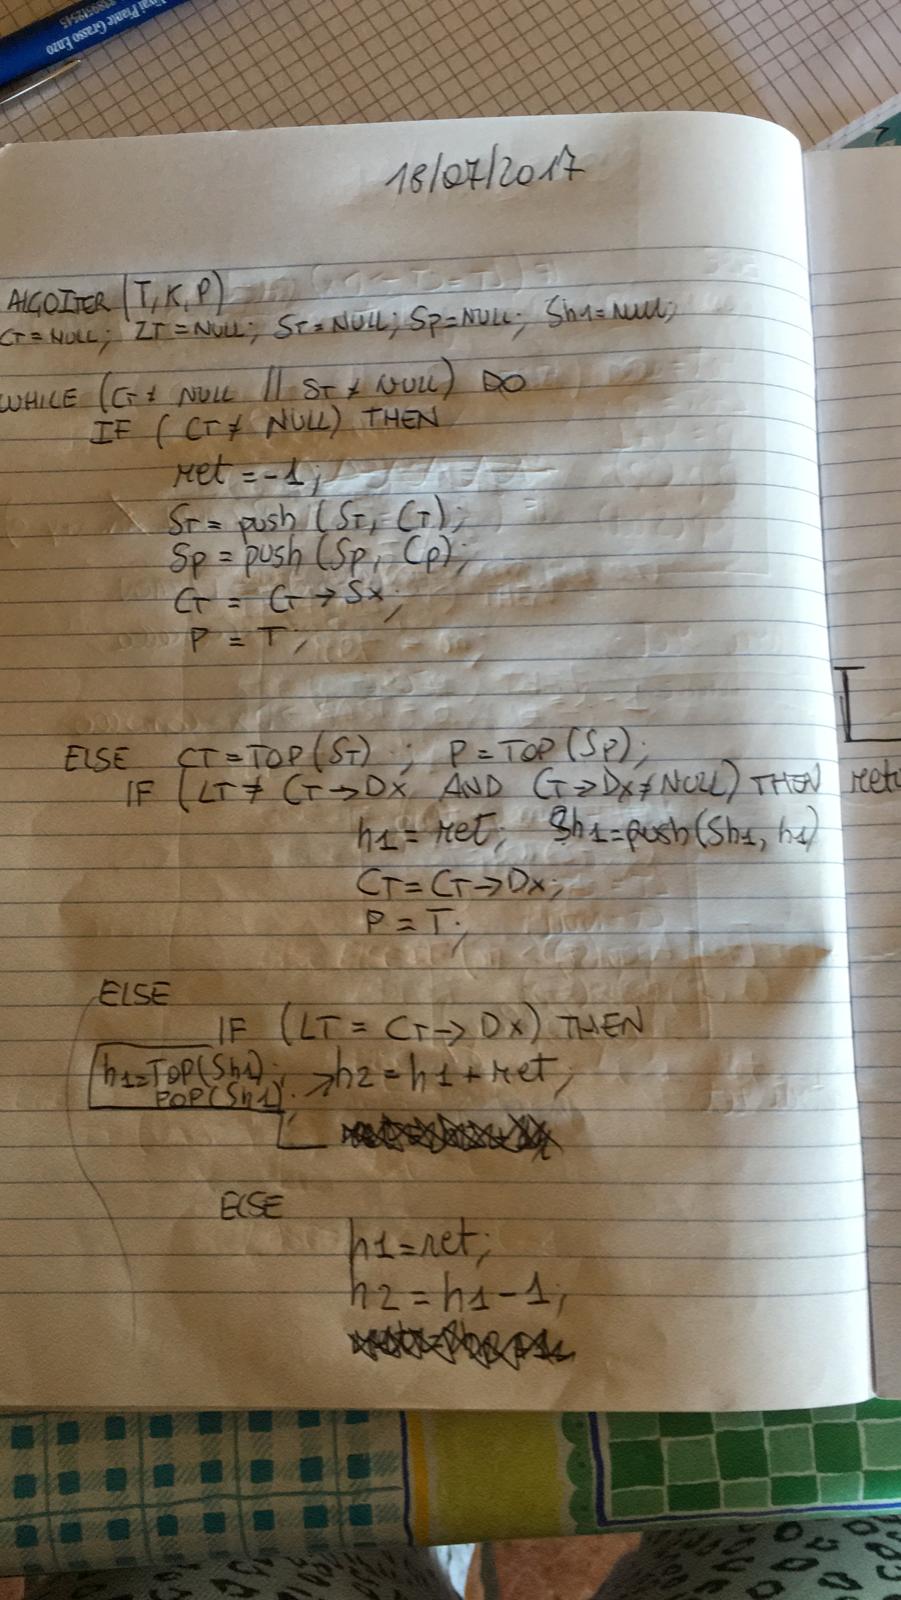 Vivai Piante Grasso Enzo
18/07/2017
ALGOITER (T, K, P)
CT = NULL; LT = NULL; ST = NULL; Sp = NULL; Sh1 = NULL;
WHILE (CT ≠ NULL || ST ≠ NULL) DO
IF (CT ≠ NULL) THEN
ret = -1;
ST = push (ST, CT);
Sp = push (Sp, Cp);
CT = CT → Sx;
P = T;
ELSE CT = TOP(ST); P = TOP(Sp);
IF (LT ≠ CT → Dx AND CT → Dx ≠ NULL) THEN
h1 = ret; Sh1 = push(Sh1, h1)
CT = CT → Dx;
P = T;
ELSE
IF (LT = CT → Dx) THEN
h1 = TOP(Sh1); → h2 = h1 + ret;
POP(Sh1);
ELSE
h1 = ret;
h2 = h1 - 1;